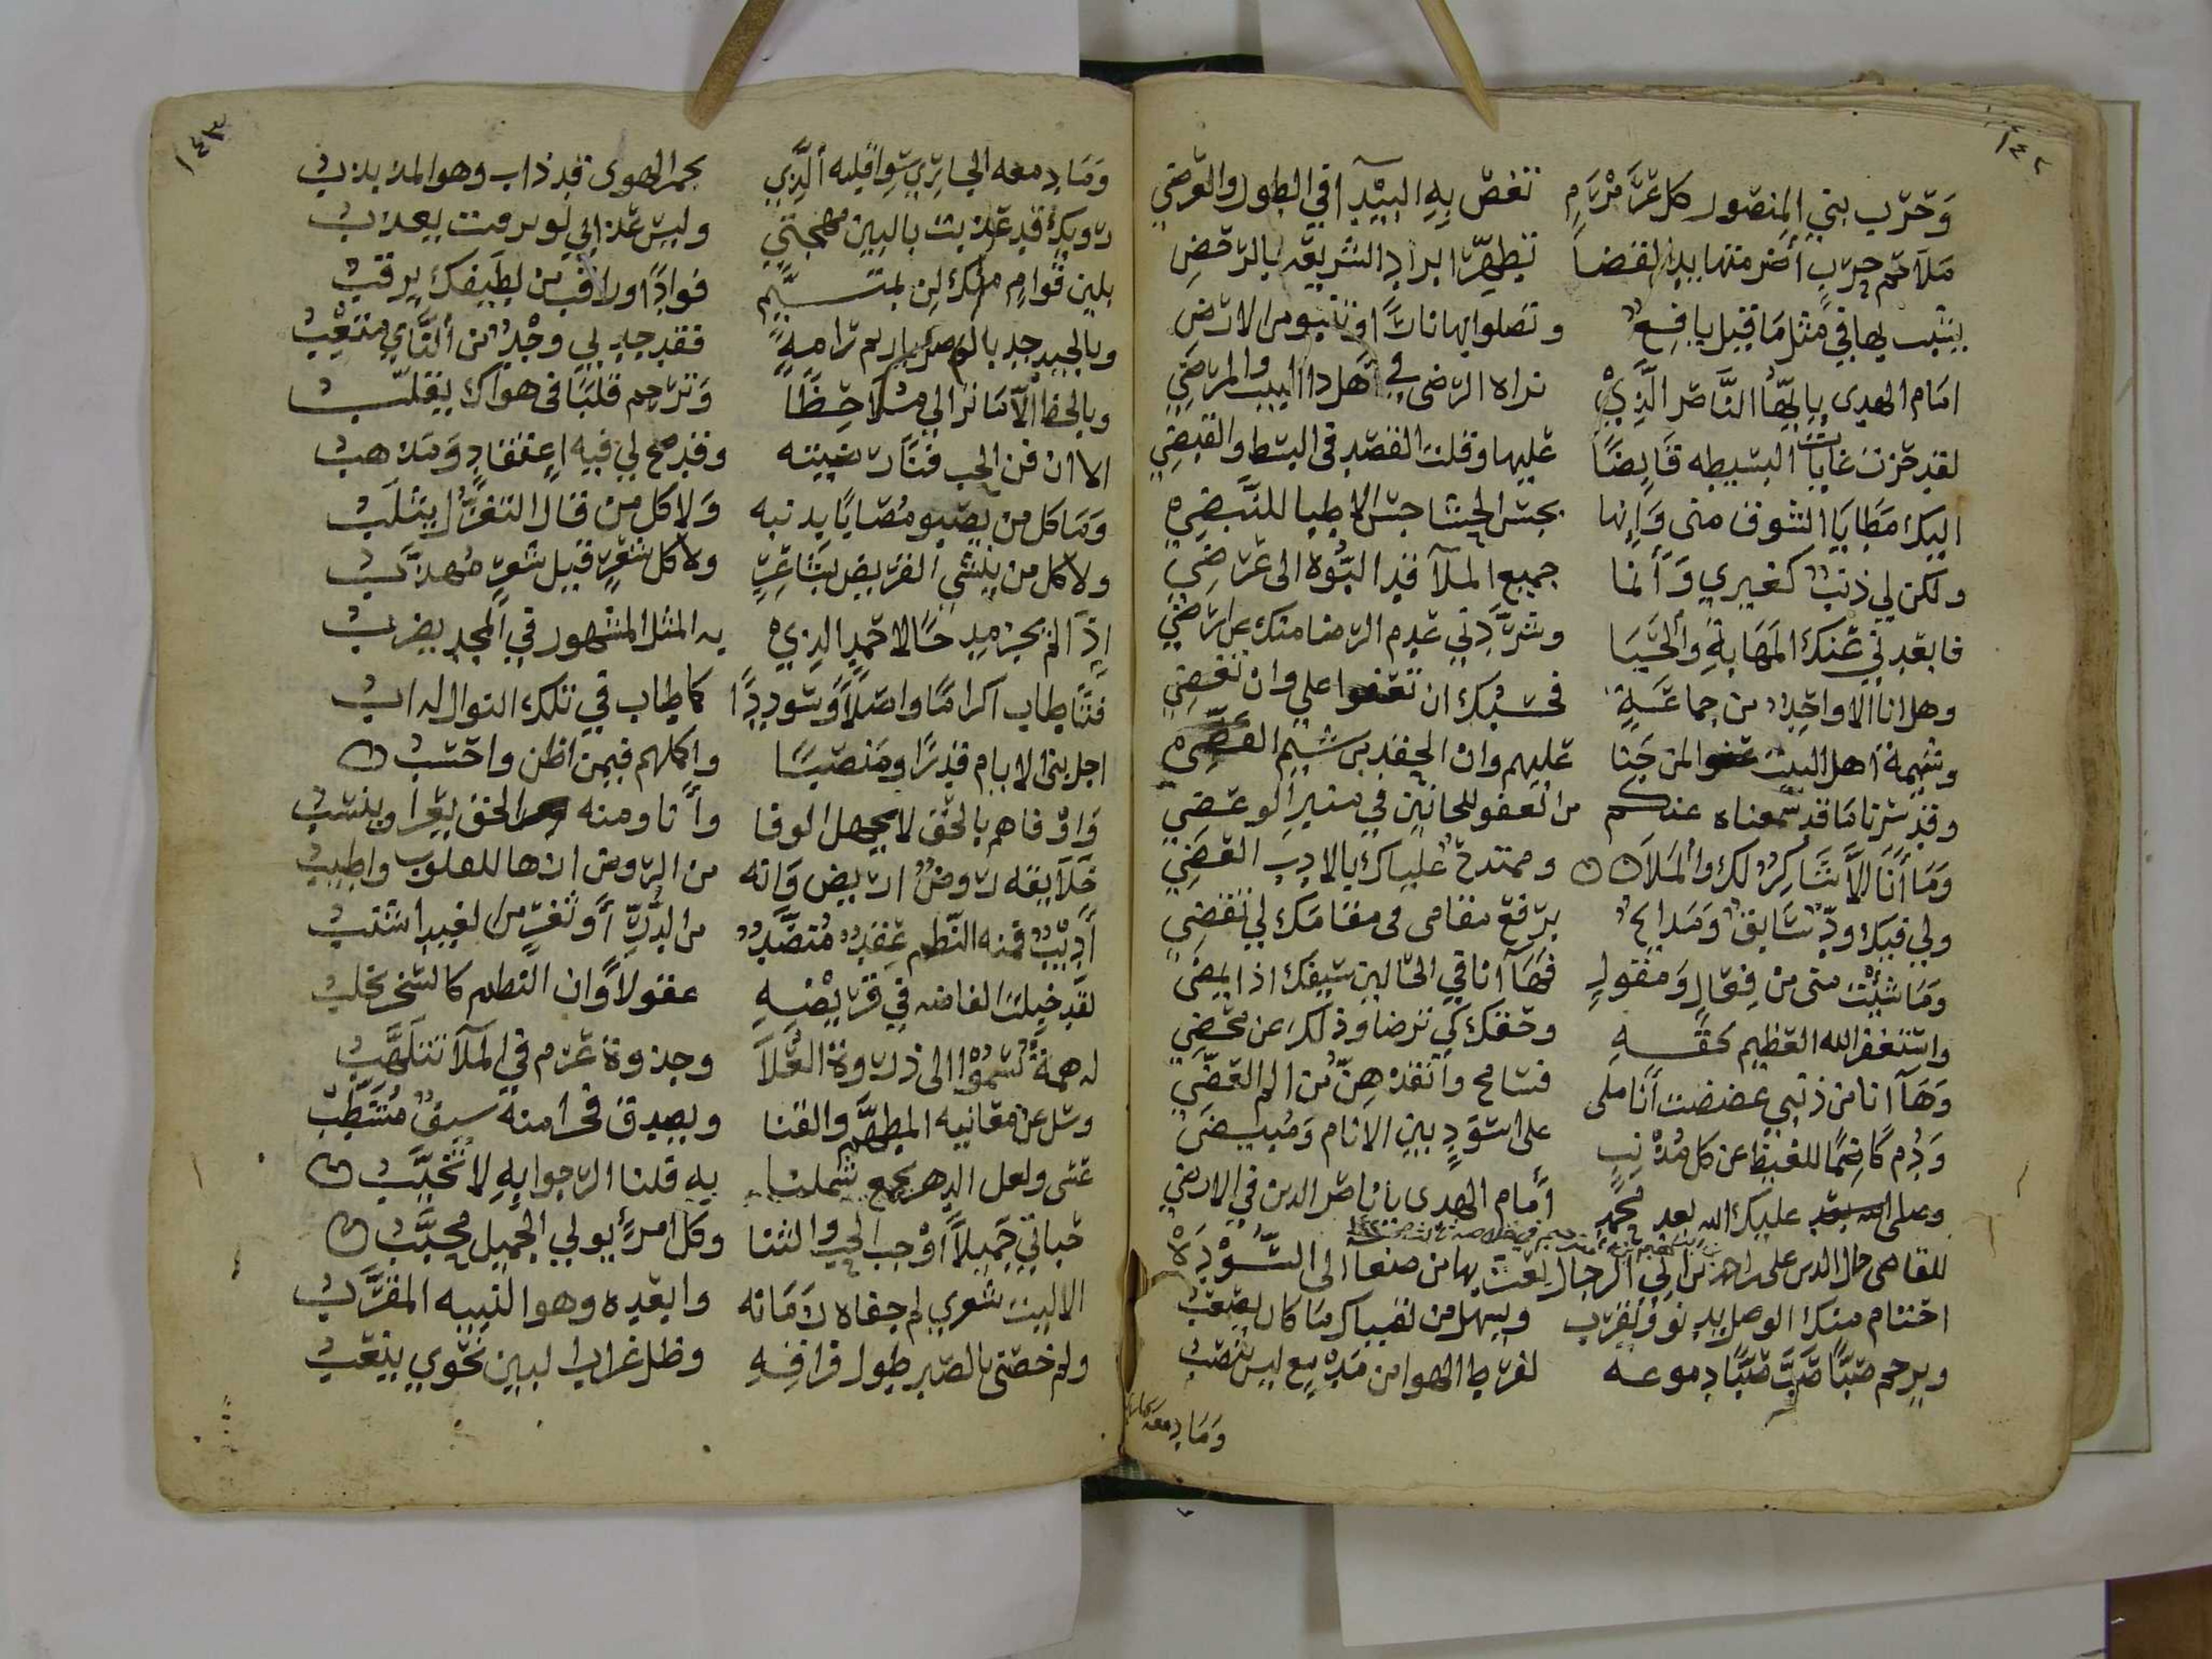 ١٤٢
وَحَرْب بني المنصور كل عرمرم تغص به البيدآ في الطول والعرض
ملآحم حرب أضرمتها يد القضا تطهّر ابراد الشريعة بالرحض
يشيب بها في مثل ما قيل يافع وتصلوا بها نارًا وتنبو من الارض
امام الهدى يا ايها الناصر الذي نراه الرضى في اهل ذا البيت والمرضي
لقد حزت غايات البسيطه قابضًا عليها وقلت القصد في البسط والقبض
اليك مطايا الشوق مني وانها بجسّ الحشا جسّ الاطبا للنبض
ولكن لي ذنب كغيري وانما جميع الملآ قد
فابعدني عنك المهابة والحيا وشرّدني عدم الرضا منك عن ارضي
وهل انا الا واحد من جماعة فحسبك ان تعفوا علي وان تغضي
وشيمة اهل البيت عفوا لمن جنا عليهم وان الحقد من شيم
وقد سرنا ما قد سمعناه عنكم من العفو للجانين في
وما انا الا شاكر لك والملآ وممتدح علياك بالادب الغض
ولي فيك ودّ سابق ومدايح برفع مقامي في مقامك لي تقضي
وما شئت مني من فعال ومقول فهآ انا في الحالين سيفك اذا يمضي
واستغفر الله العظيم بحقه وحقك كي ترضا وذلك عن محض
وهآ انا من ذنبي عضضت اناملي فسامح وأنقذهن من الم العض
ودم كاظمًا للغيظ عن كل مذنب على اسود بين الانام ومبيض
وصلى عليك الله بعد محمد امام الهدى يا ناصر الدين في الارض
للقاضي جمال الدين علي بن احمد بن ابي الرجال بعث بها من صنعا الى السودة
احتتام منك الوصل يدنو ويقرب ويسهل من لقياك ما كان يصعب
ويرحم صبًّا صَبَّ صبًّا دموعه لفرط الهوا من مدمع ليس ينضب
وما دمعه
١٤٣
وما دمعه الجاري سوا قلبه الذي بجمر الهوى قد ذاب وهو المذبذب
رويدك قد عذبت بالبين مهجتي وليس عذابي لو رمت يعذب
بلين قوام منك لن لمتيّم فوادًا وراقب من لطيفك يرقب
وبالجيد جد بالوصل يا ريم رامة فقد جد بي وجد من النّأي متعب
وبالحظ الّا ما نرا لي ملاحظًا وترحم قلبًا في هواك يقلّب
الا ان فن الحب فنًّا رضيته وقد صح لي فيه اعتقاد ومذهب
وما كل من يصبو مصابًا بدنبه ولا كل من قال التغزّل يثلب
ولا كل من ينشي القريض بشاعر ولا كل شعر قيل شعر مهذب
اذا لم يجز مدحًا لاحمد الذي به المثل المشهور في المجد يضرب
فتًا طاب اكرامًا واصلاً وسوددًا كما طاب في تلك النوال له اب
اجل بني الايام قدرًا ومنصبًا واكملهم فيمن اظن واحسب
واوفاهم بالحق لا يجهل الوفا وأنا ومنه الحق يعزا وينسب
خلآيقه روضٌ اريض وانه من الروض ازها للقلوب واطيب
أديب فمنه النظم عقد منضّد من الدرّ أو ثغر من الغيد اشنب
لقد خيلت الفاضه في قريضه عقولاً وان النظم كالسحر تخلب
له همة تسموا الى ذروة العُلآ وجذوة عزم في الملآ تتلهّب
وسل عن معانيه المطهّم والقنا ويصدق فخرا منه سيف مشطّب
عسى ولعل الدهر يجمع شملنا به قلنا الرجوا به لا تخيّب
حباني جميلاً أوجب الحب والثنا وكل امرءٍ يولي الجميل محبّب
الا ليت شعري لم جفاه زمانه وابعده وهو النبيه المقرّب
ولم خصّني بالصبر طول فراقه وظل غراب البين نحوي ينعب